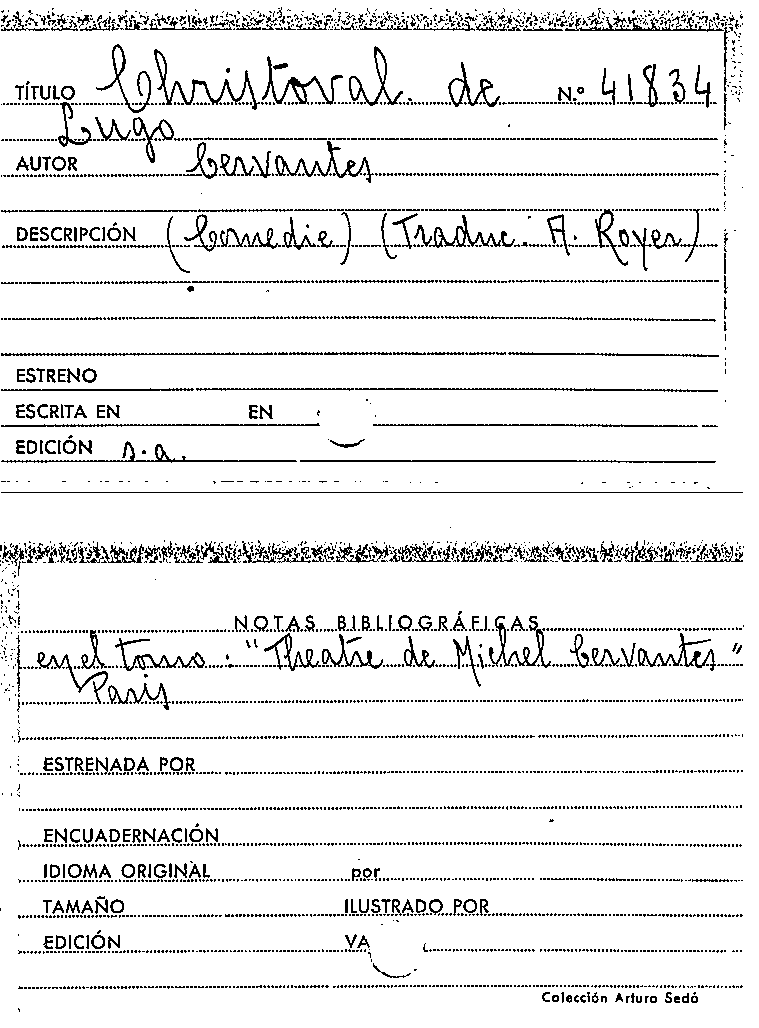 TÍTULO Christoval. de N.º 41834
Lugo
AUTOR Cervantes
DESCRIPCIÓN (Comedie) (Traduc. A. Royer)
ESTRENO
ESCRITA EN EN
EDICIÓN s.a.
NOTAS BIBLIOGRÁFICAS
en el tomo: "Theatre de Michel Cervantes"
Paris
ESTRENADA POR
ENCUADERNACIÓN
IDIOMA ORIGINAL por
TAMAÑO ILUSTRADO POR
EDICIÓN VA
Colección Arturo Sedó